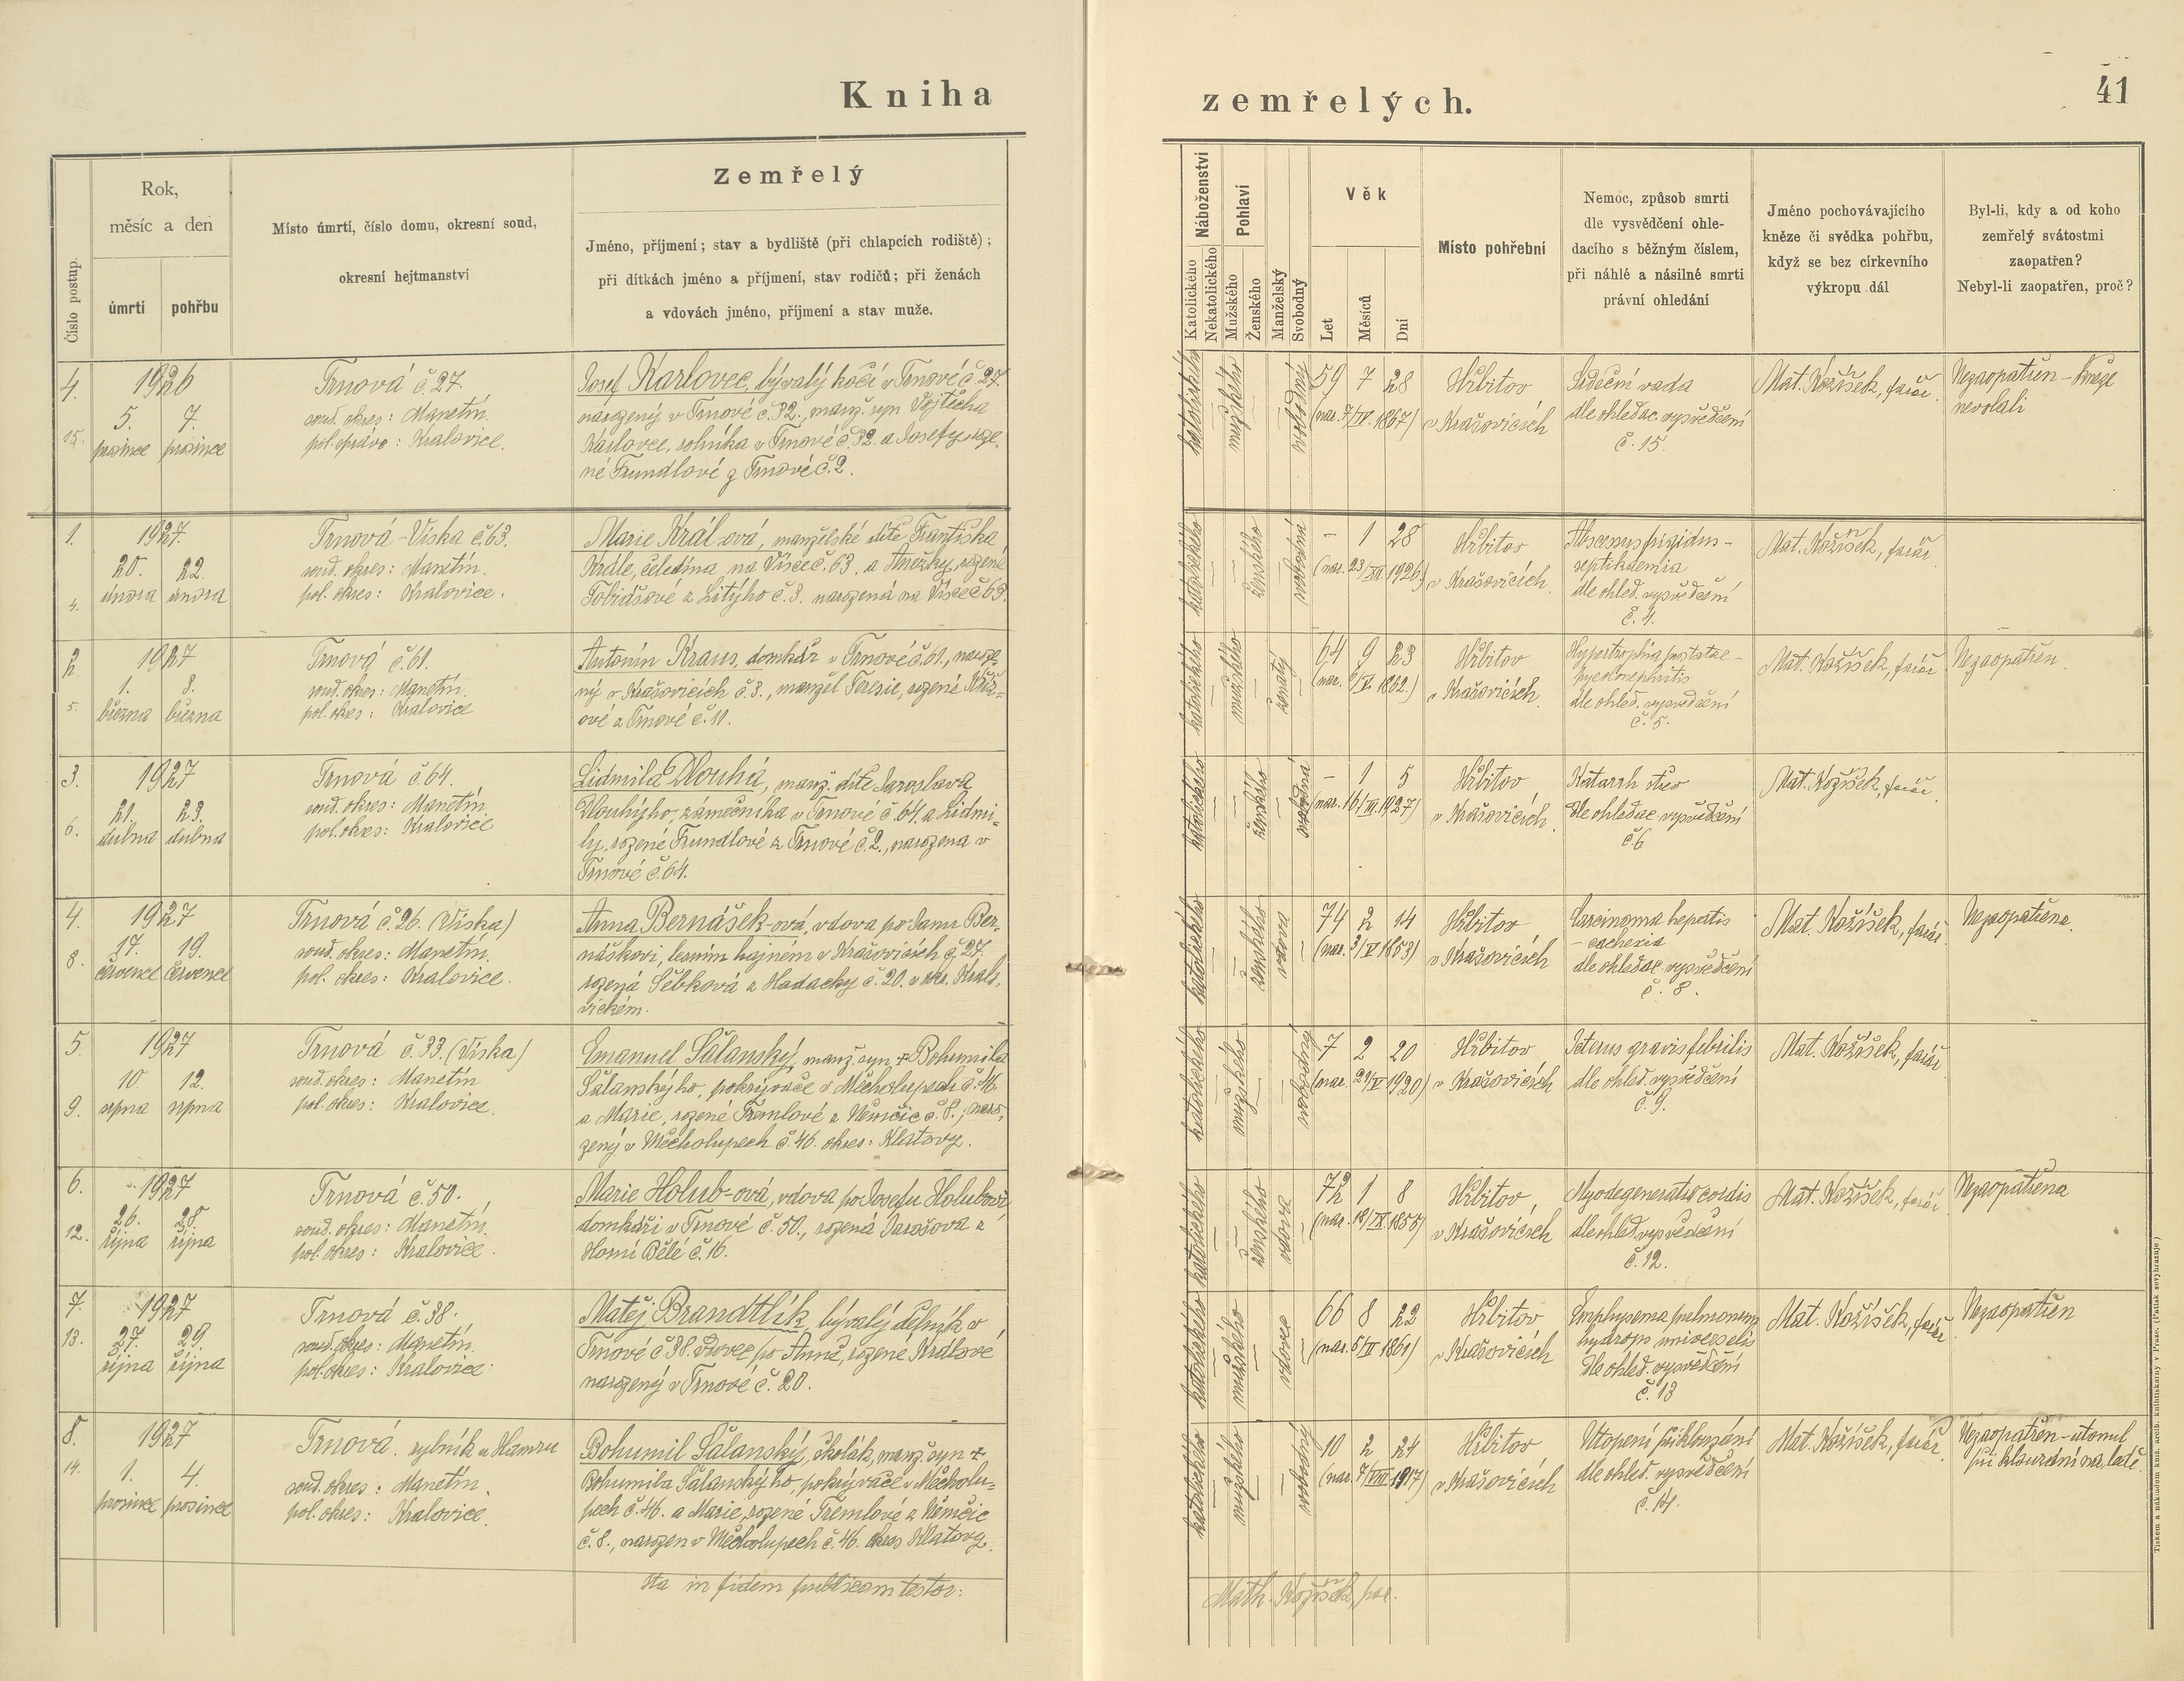 Kniha zemřelých.
41
Číslo postup.
Rok,
měsíc a den
úmrtí
pohřbu
Místo úmrtí, číslo domu, okresní soud,
okresní hejtmanství
Zemřelý
Jméno, příjmení; stav a bydliště (při chlapcích rodiště);
při dítkách jméno a příjmení, stav rodičů; při ženách
a vdovách jméno, příjmení a stav muže.
Náboženství
Katolického
Nekatolického
Pohlaví
Mužského
Ženského
Manželský
Svobodný
Věk
Let
Měsíců
Dní
Místo pohřební
Nemoc, způsob smrti
dle vysvědčení ohle-
dacího s běžným číslem,
při náhlé a násilné smrti
právní ohledání
Jméno pochovávajícího
kněze či svědka pohřbu,
když se bez církevního
výkropu dál
Byl-li, kdy a od koho
zemřelý svátostmi
zaopatřen?
Nebyl-li zaopatřen, proč?
4.
15.
1926
5. 7.
prosince prosince
Trnová č. 27.
soud. okres: Manetín.
pol. správa: Kralovice.
Josef Karlovec, bývalý kočí v Trnové č. 27.
narozený v Trnové č. 32., manž. syn Vojtěcha
Karlovce, rolníka v Trnové č. 32. a Josefy roze-
né Trundlové z Trnové č. 2.
katolického
mužského
svobodný
59 7 28
(nar. 7/IV. 1867)
Hřbitov
v Krašovicích
Srdeční vada
dle ohledac. vysvědčení
č. 15.
Mat. Kožíšek, farář.
Nezaopatřen - kněze
nevolali
1.
4.
1927.
20. 22.
února února
Trnová - Víska č. 63.
soud. okres: Manetín.
pol. okres: Kralovice.
Marie Král-ová, manželské dítě Františka
Krále, čeledína na Vísce č. 63. a Anežky, rozené
Tobiášové z Litýho č. 3. narozená na Vísce č. 63.
katolického
ženského
svobodná
- 1 28
(nar. 23/XII 1926)
Hřbitov
v Krašovicích.
Abscesus frigidus -
septikaemia
dle ohled. vysvědčení
č. 4.
Mat. Kožíšek, farář
2
5.
1927
1. 3.
března března
Trnová č. 61.
soud. okres: Manetín.
pol. okres: Kralovice
Antonín Kraus, domkář v Trnové č. 61., naroze-
ný v Krašovicích č. 3., manžel Terezie, rozené
ové z Trnové č. 11.
katolického
mužského
ženatý
64 9 23
1862.)
Hřbitov
v Krašovicích.
Hypertrophia prostatae -
pyelonephritis
dle ohled. vysvědčení
č. 5.
Mat. Kožíšek, farář
Nezaopatřen.
3.
6.
1927
21. 23.
dubna dubna
Trnová č. 64.
soud. okres: Manetín.
pol. okres: Kralovice
Lidmila Dlouhá, manž. dítě Jaroslava
Dlouhýho, zámečníka v Trnové č. 64. a Lidmi-
ly, rozené Trundlové z Trnové č. 2., narozena v
Trnové č. 64.
katolického
ženského
svobodná
- 1 5
(nar. 16/III. 1927)
Hřbitov
v Krašovicích.
Katarrh střev
dle ohledac. vysvědčení
č. 6
Mat. Kožíšek, farář.
4.
8.
1927
17. 19.
července července
Trnová č. 26. (Víska)
soud. okres: Manetín.
pol. okres: Kralovice.
Anna Bernášek-ová, vdova po Janu Ber-
náškovi, lesním hajném v Krašovicích č. 27.
rozená Šebková z Hadačky č. 20. v okr. Kralo-
vickém.
katolického
ženského
vdova
74 2 14
(nar. 3/V 1853)
Hřbitov
v Krašovicích
Carcinoma hepatis
- cachexia
dle ohledac. vysvědčení
č. 8.
Mat. Kožíšek, farář.
Nezaopatřena.
5.
9.
1927
10. 12.
srpna srpna
Trnová č. 33. (Víska)
soud. okres: Manetín
pol. okres: Kralovice.
Emanuel Šalanský, manž. syn + Bohumila
Šalanskýho, pokrývače v Měcholupech č. 46.
a Marie, rozené Tremlové z Němčic č. 8.; naro-
zený v Měcholupech č. 46. okres: Klatovy.
katolického
mužského
svobodný
7 2 20
(nar. 21/V 1920)
Hřbitov
v Krašovicích
Icterus gravis febrilis
dle ohled. vysvědčení
č. 9.
Mat. Kožíšek, farář
6.
12.
1927
26. 28.
října října
Trnová č. 50.
soud. okres: Manetín.
pol. okres: Kralovice.
Marie Holub-ová, vdova po Josefu Holubovi,
domkáři v Trnové č. 50., rozená Jarošova z
Horní Bělé č. 16.
katolického
ženského
vdova
72 1 8
(nar. 18/IX 1855)
Hřbitov
v Krašovicích
Myodegeneratio cordis
dle ohled. vysvědčení
č. 12.
Mat. Kožíšek, farář
Nezaopatřena
7.
13.
1927
27. 29.
října října
Trnová č. 38.
soud. okres: Manetín.
pol. okres: Kralovice.
Matěj Brandtlík, bývalý dělník v
Trnové č. 38. vdovec po Anně, rozené Králové
narozený v Trnové č. 20.
katolického
mužského
vdovec
66 8 22
(nar. 5/II 1861)
Hřbitov
v Krašovicích
Emphysema pulmonum
hydrops universalis
dle ohled. vysvědčení
č. 13
Mat. Kožíšek, farář
Nezaopatřen
8.
14.
1927
1. 4.
prosince prosince
Trnová. rybník u Hamru
soud. okres: Manetín.
pol. okres: Kralovice.
Bohumil Šalanský, školák, manž. syn +
Bohumila Šalanskýho, pokrývače v Měcholu-
pech č. 46. a Marie, rozené Tremlové z Němčic
č. 8., narozen v Měcholupech č. 46. okres Klatovy.
katolického
mužského
svobodný
10 2 24
(nar. 7/VIII 1917)
Hřbitov
v Krašovicích
Utopení při klouzání
dle ohled. vysvědčení
č. 14.
Mat. Kožíšek, farář
Nezaopatřen - utonul
při klouzání na ledě.
Ita in fidem publicam testor:
Math. Kožíšek, par.